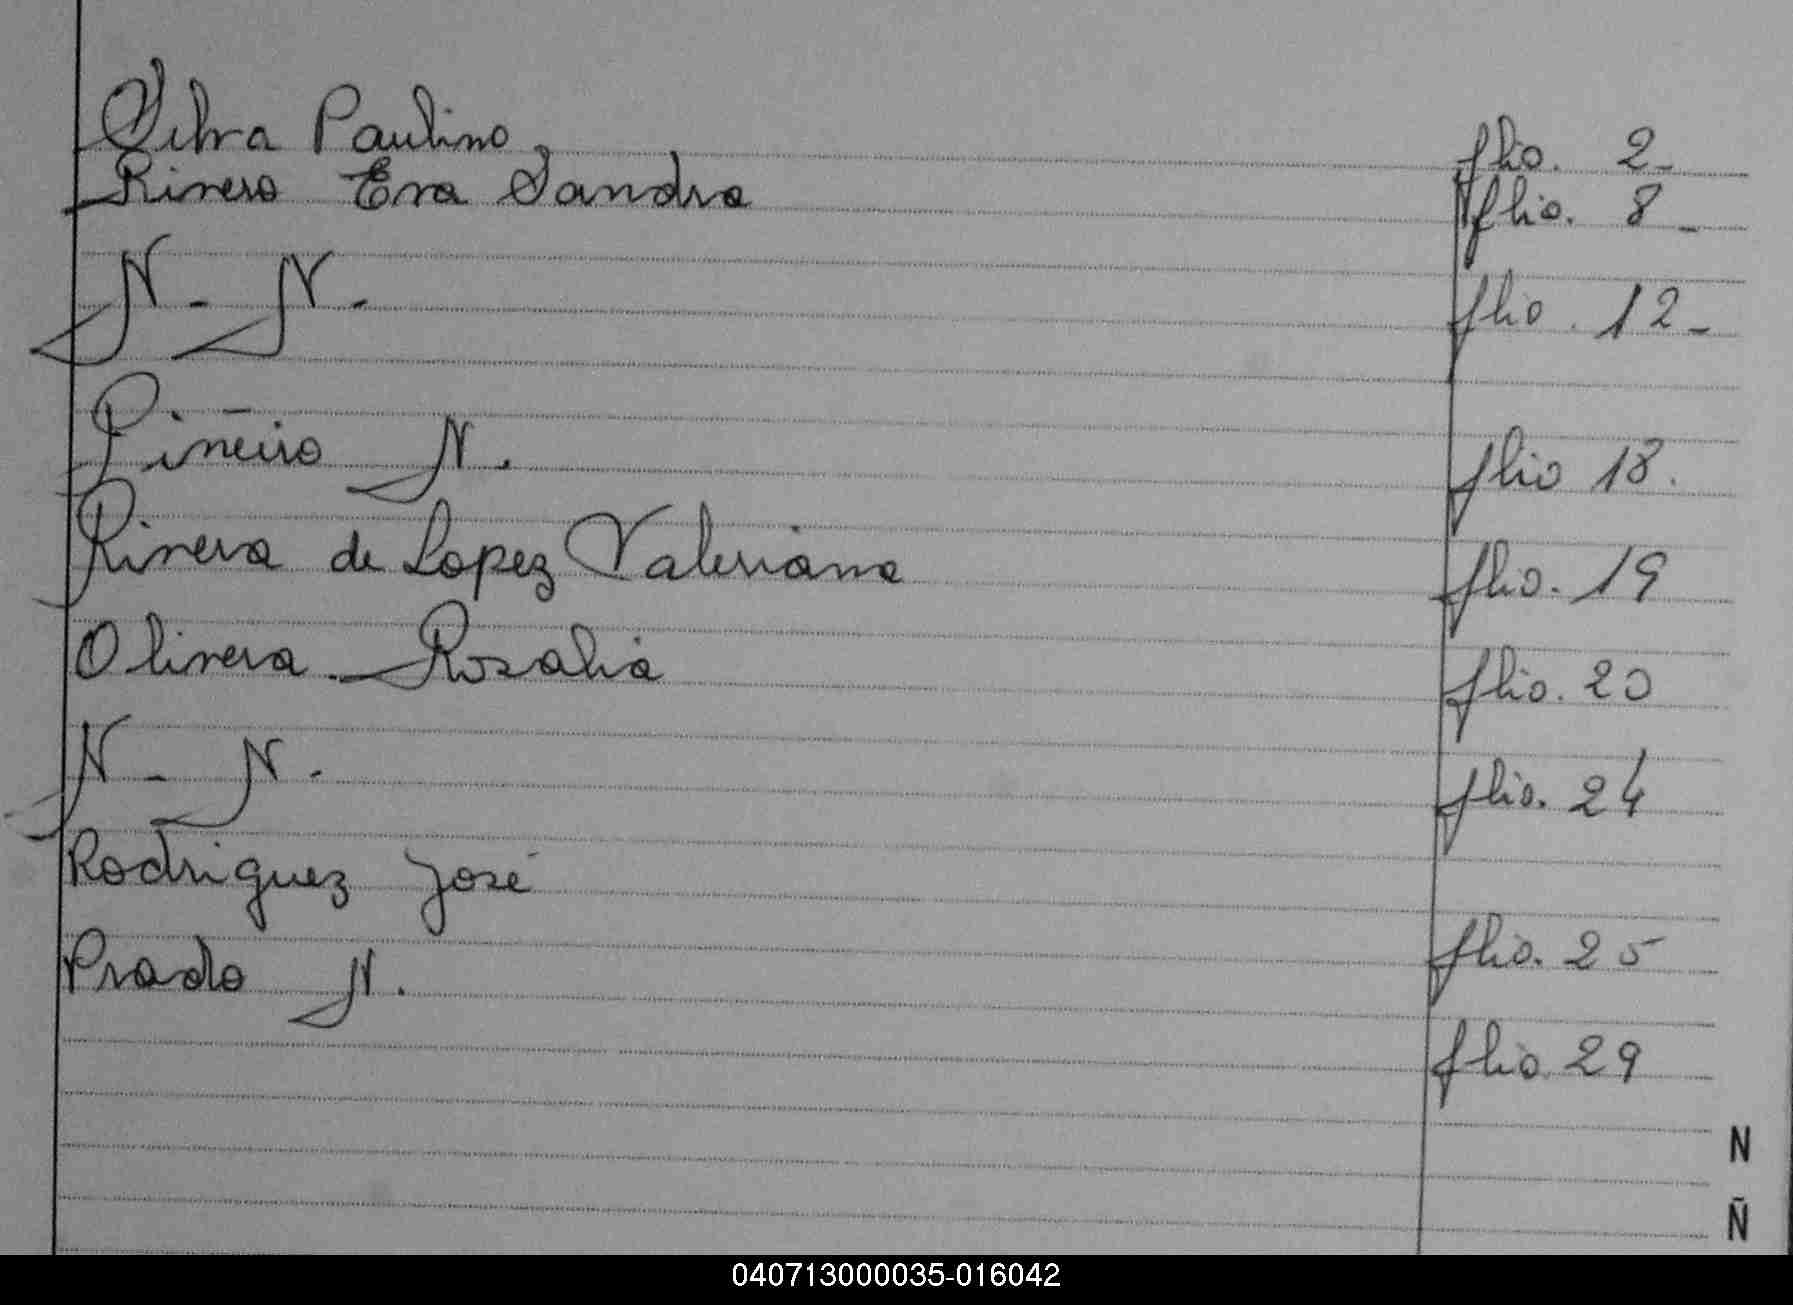 Silva Paulino flio. 2-
Rivero Eva Sandra flio. 8-
N-N. flio. 12-
Piñeiro N. flio 18.
Rivera de Lopez Valeriana flio. 19
Olivera Rosalia flio. 20
N-N. flio. 24
Rodriguez José flio. 25
Prado N. flio 29
N
Ñ
040713000035-016042